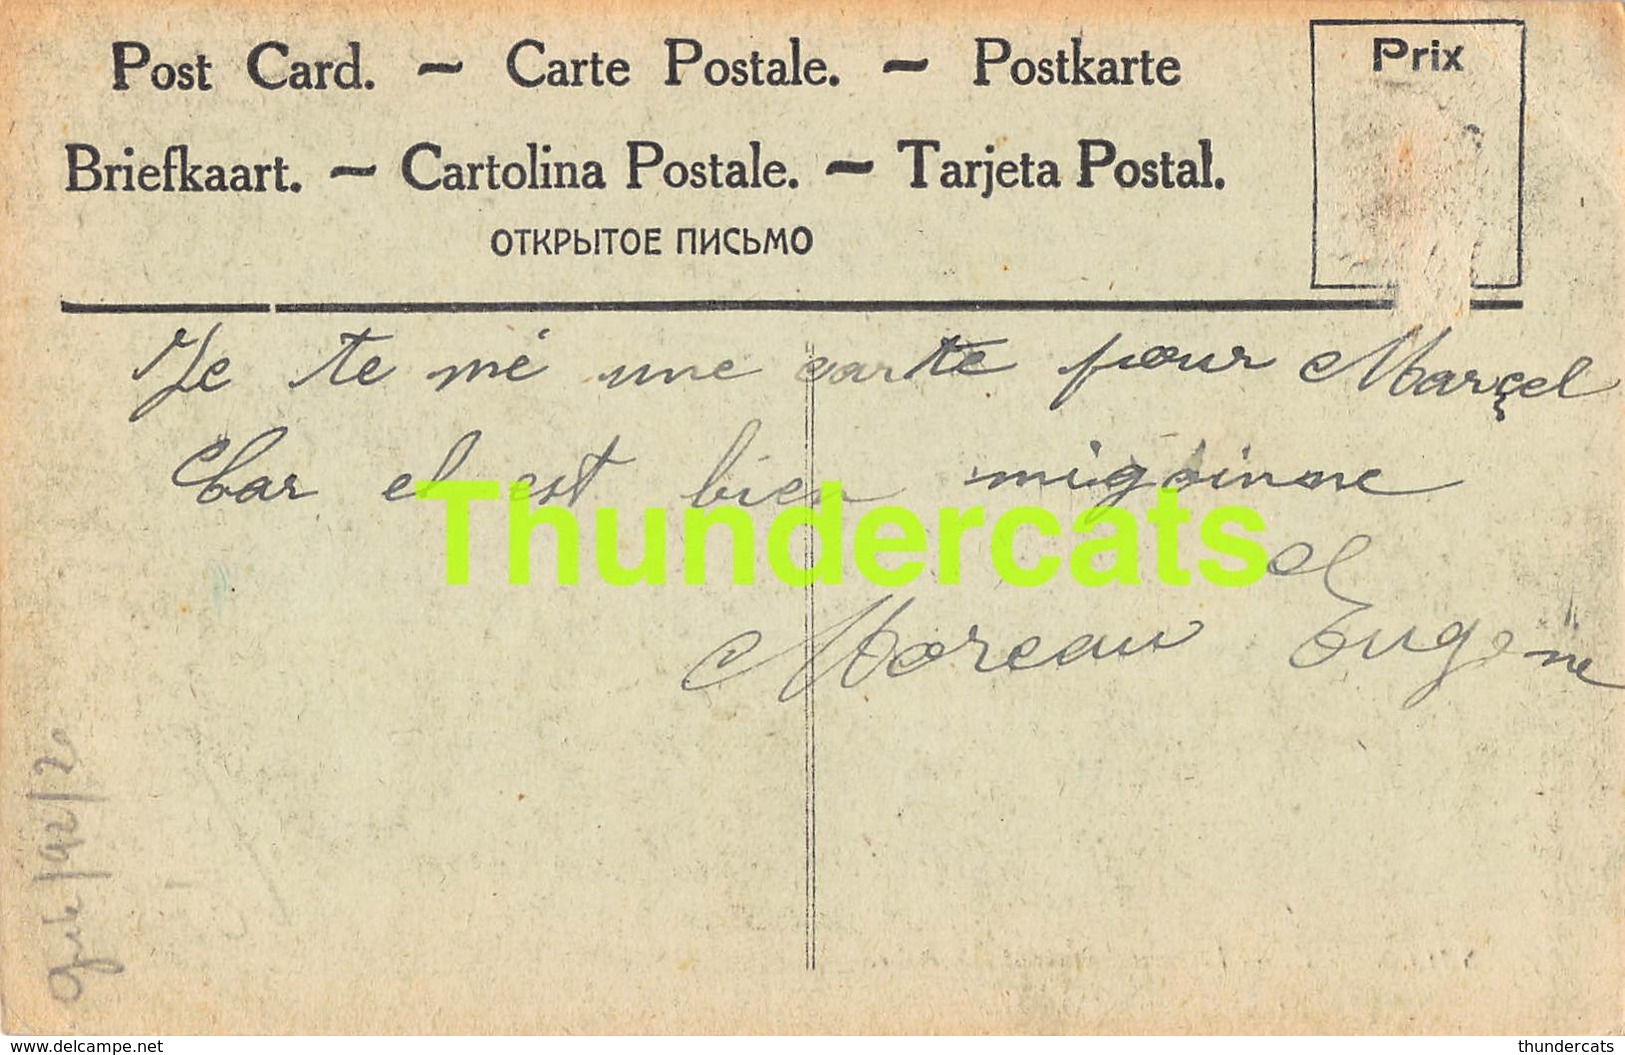 Post Card. — Carte Postale. — Postkarte
Prix
Briefkaart. — Cartolina Postale. — Tarjeta Postal.
ОТКРЫТОЕ ПИСЬМО
Je te mé une carte pour Marçel
Car el est bien migoinne
Thundercats
Moreau Eugene
www.delcampe.net
thundercats